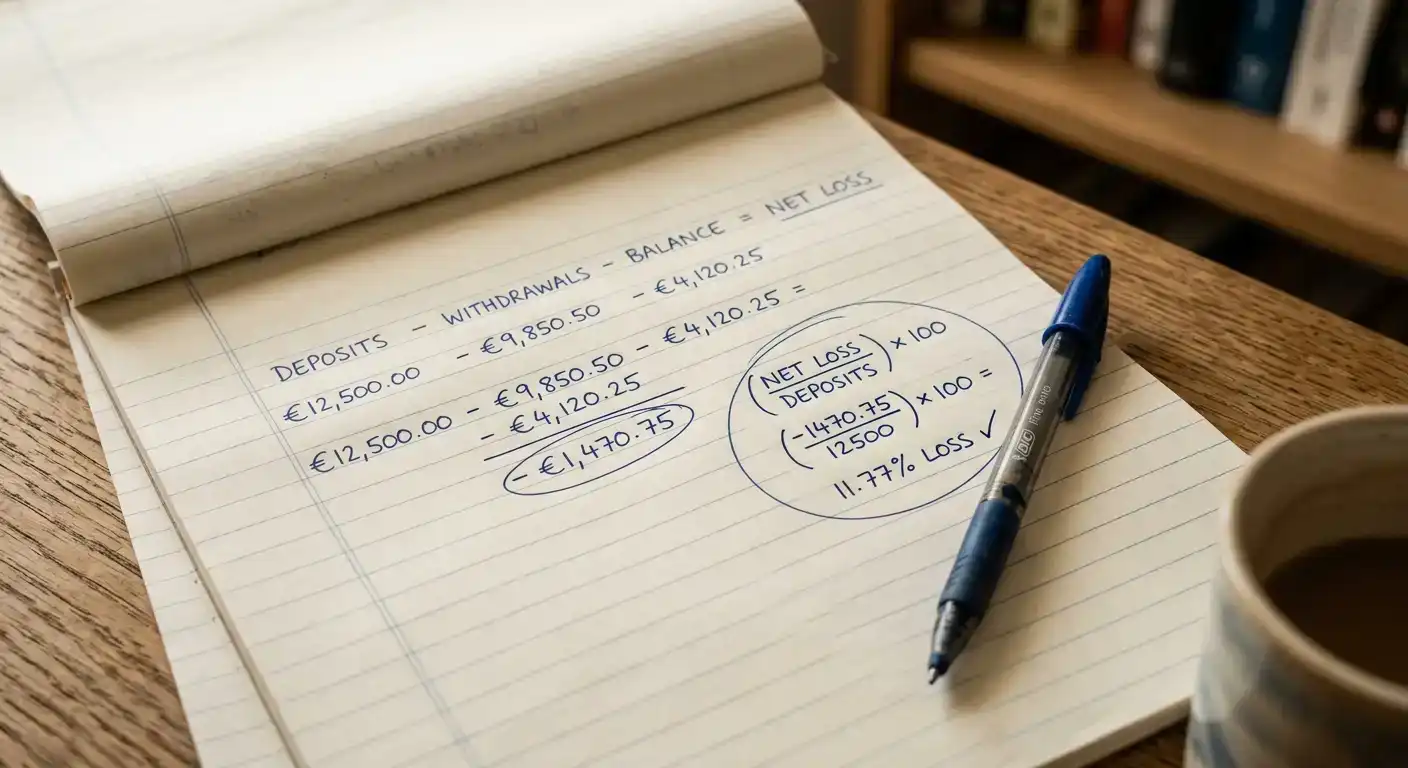 DEPOSITS - WITHDRAWALS - BALANCE = NET LOSS
€12,500.00 - €9,850.50 - €4,120.25
€12,500.00 - €9,850.50 - €4,120.25 =
- €4,120.25
- €1,470.75
(NET LOSS / DEPOSITS) × 100
(-1470.75 / 12500) × 100 =
11.77% LOSS ✓
BIC